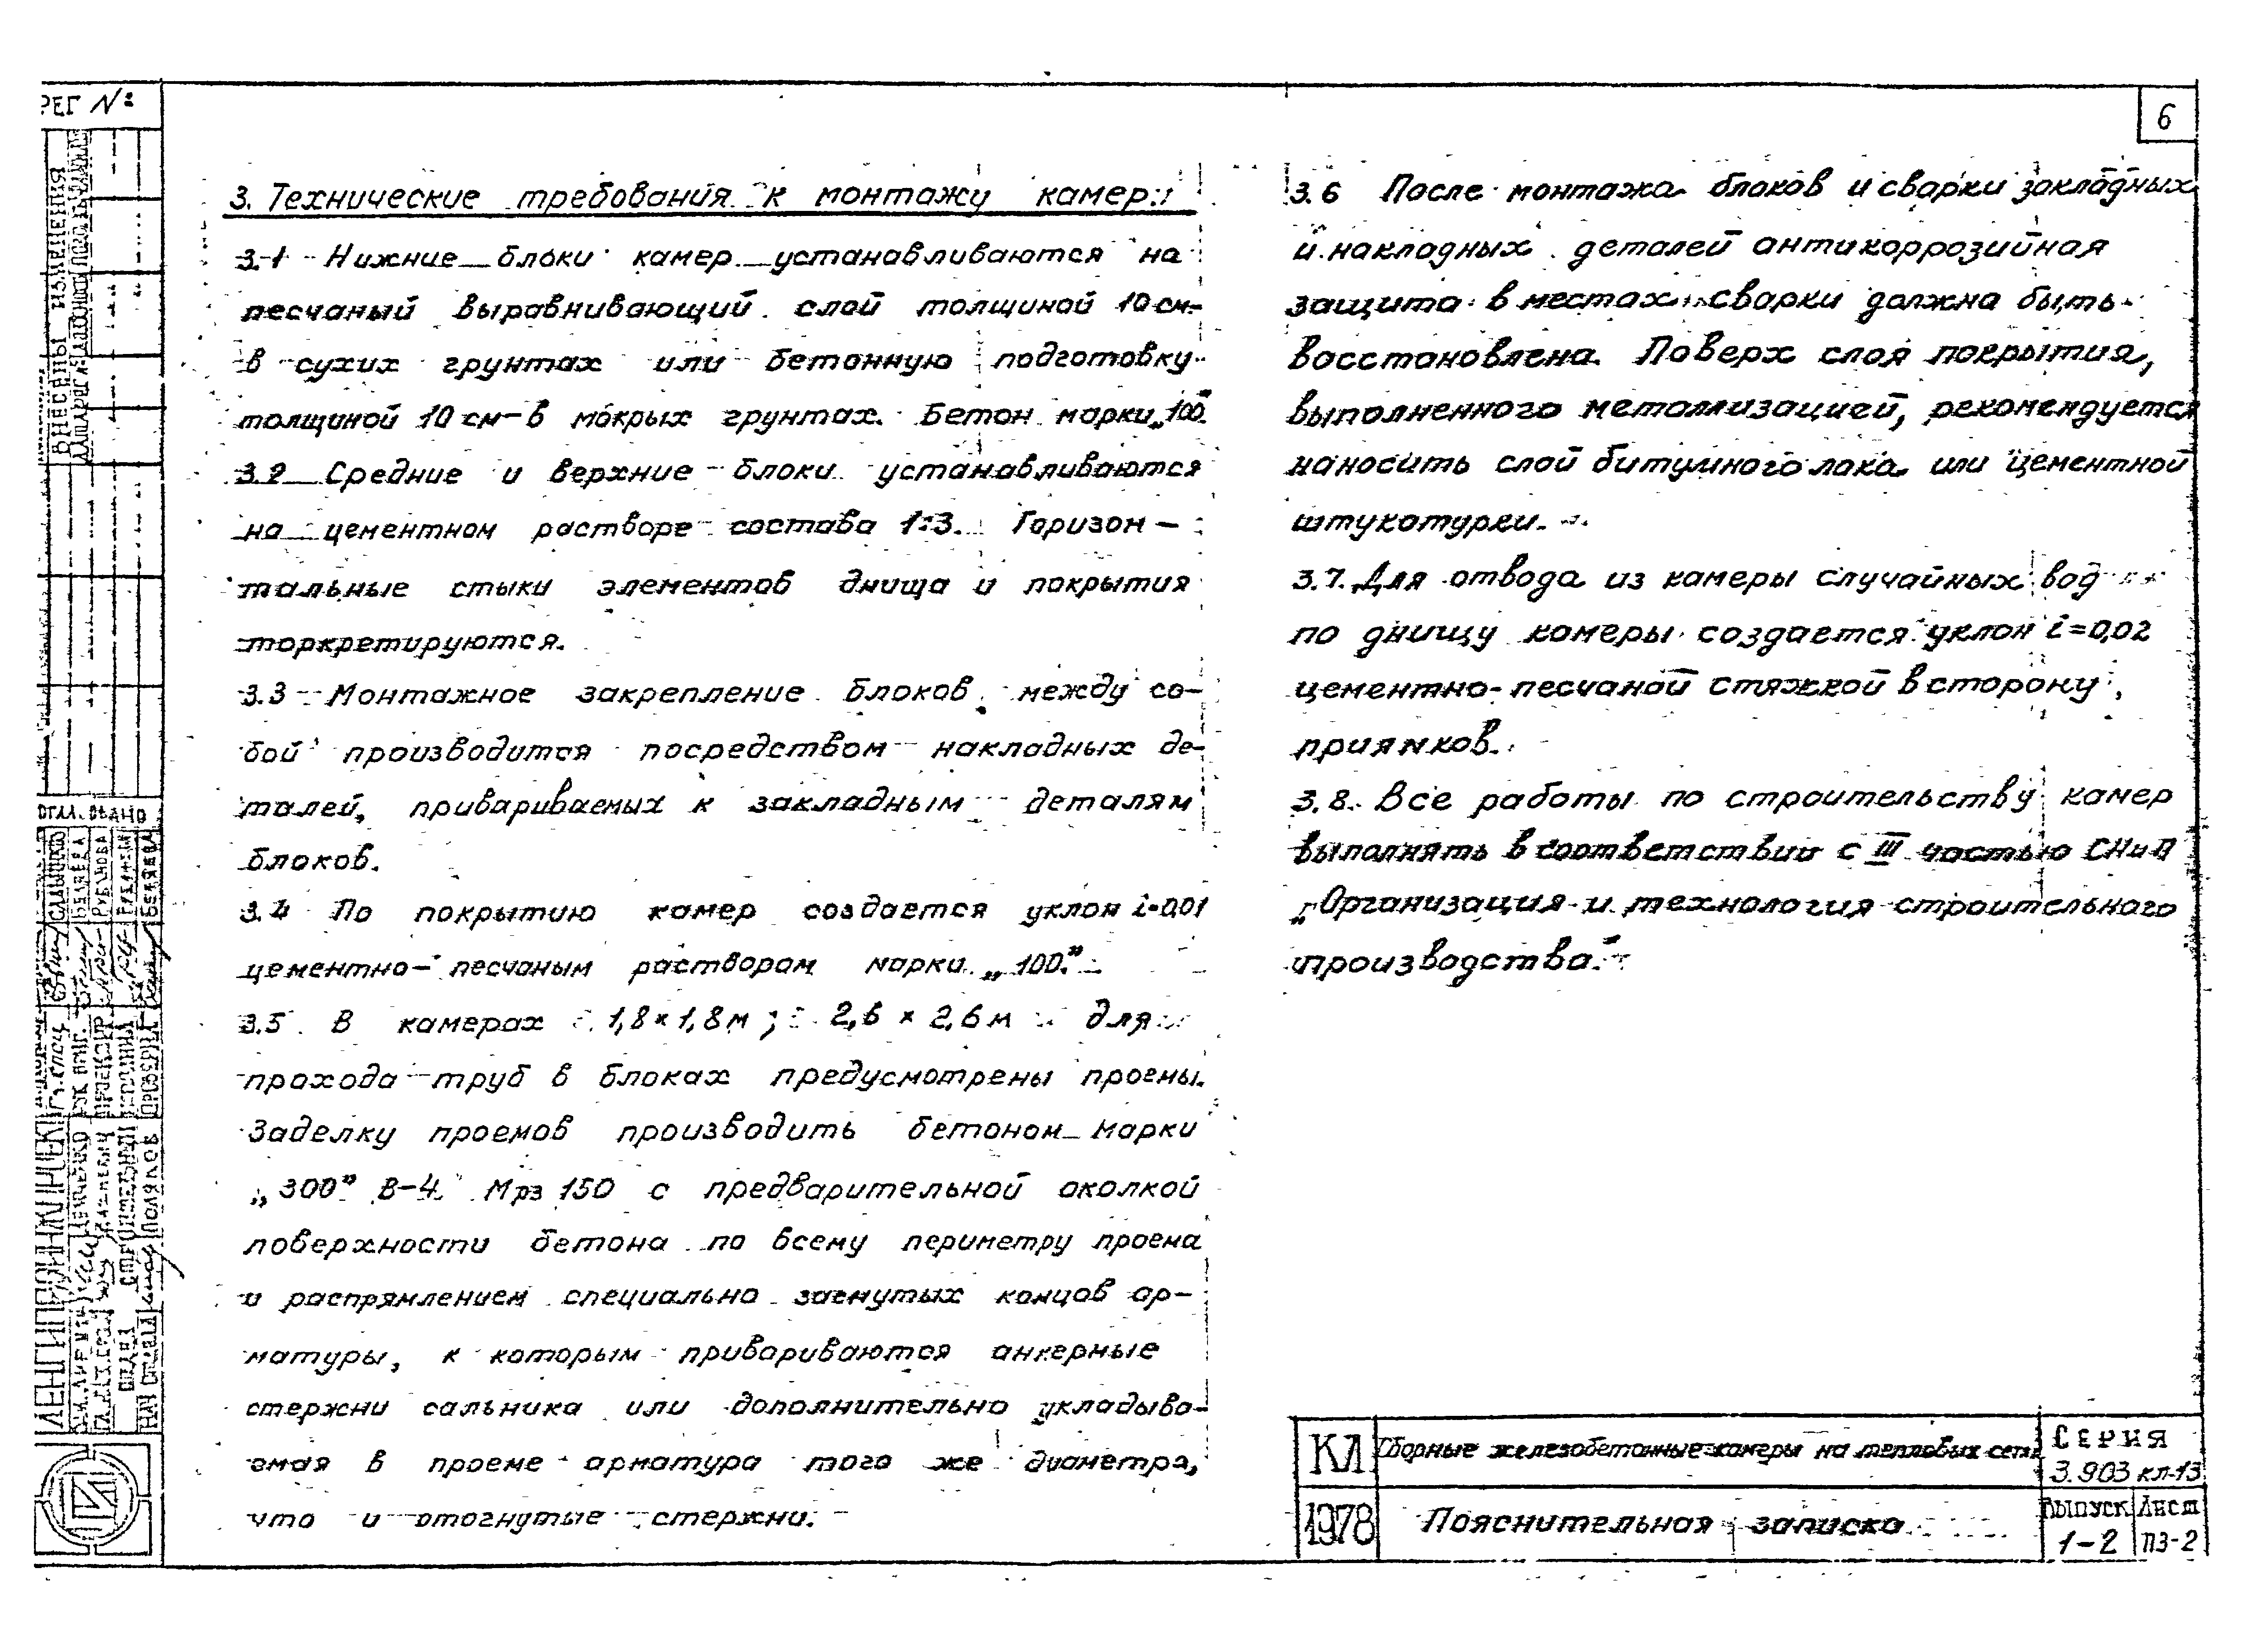 РЕГ №
6
3. Технические требования к монтажу камер.
3.1 Нижние блоки камер устанавливаются на
песчаный выравнивающий слой толщиной 10 см-
в сухих грунтах или бетонную подготовку
толщиной 10 см-в мокрых грунтах. Бетон марки „100”.
3.2 Средние и верхние блоки устанавливаются
на цементном растворе состава 1:3. Горизон-
тальные стыки элементов днища и покрытия
торкретируются.
3.3 Монтажное закрепление блоков между со-
бой производится посредством накладных де-
талей, привариваемых к закладным деталям
блоков.
3.4 По покрытию камер создается уклон i=0,01
цементно-песчаным раствором марки „100.”
3.5 В камерах 1,8×1,8м; 2,6×2,6м для
прохода труб в блоках предусмотрены проемы.
Заделку проемов производить бетоном марки
„300” В-4 Мрз 150 с предварительной околкой
поверхности бетона по всему периметру проема
и распрямлением специально загнутых концов ар-
матуры, к которым привариваются анкерные
стержни сальника или дополнительно укладыва-
емая в проеме арматура того же диаметра,
что и отогнутые стержни.
3.6 После монтажа блоков и сварки закладных
и накладных деталей антикоррозийная
защита в местах сварки должна быть
восстановлена. Поверх слоя покрытия,
выполненного металлизацией, рекомендуется
наносить слой битумного лака или цементной
штукатурки.
3.7. Для отвода из камеры случайных вод
по днищу камеры создается уклон i=0,02
цементно-песчаной стяжкой в сторону
приямков.
3.8. Все работы по строительству камер
выполнять в соответствии с III частью СНиП
„Организация и технология строительного
производства.”
КЛ Сборные железобетонные камеры на тепловых сетях
Серия
3.903 кл-13
1978 Пояснительная записка
Выпуск Лист
1-2 ПЗ-2
ВНЕСЕНЫ ИЗМЕНЕНИЯ
ЛЕНГИПРОИНЖПРОЕКТ
ПОЛЯКОВ